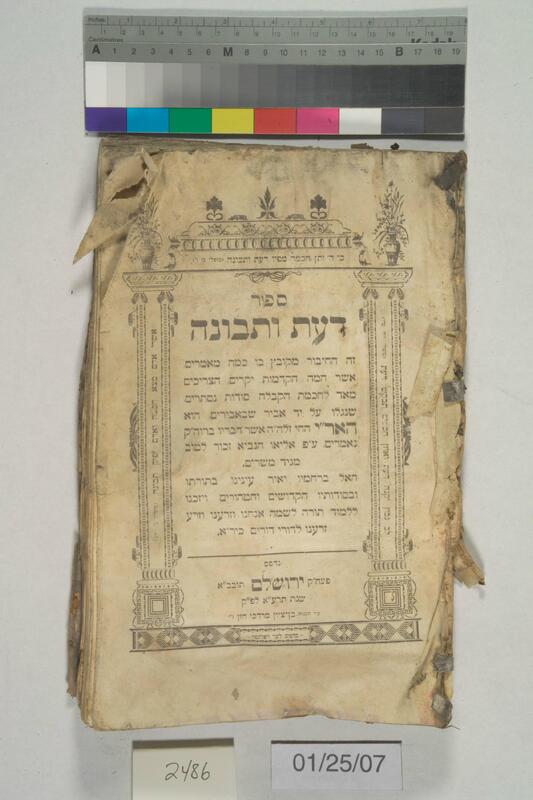 Inches 1 2 3 4 5 6 7 8
Centimetres 1 2 3 4 5 6 7 8 9 10 11 12 13 14 15 16 17 18 19
Kodak
A 1 2 3 4 5 6 M 8 9 10 11 12 13 14 15 B 17 18 19
כי ה׳ יתן חכמה מפיו דעת ותבונה
ספר
דעת ותבונה
זה החיבור מקובץ בו כמה מאמרים
אשר המה הקדמות יקרים. הצריכים
מאד לחכמת הקבלה סודות נסתרים
שנגלו על יד אביר שבאבירים. הוא
האר״י החי זלה״ה אשר חבריו ברוה״ק
נאמרים. ע״פ אליאו הנביא זכור לטוב
מגיד משרים.
האל ברחמיו יאיר עינינו בתורתו
ובסודותיו הקדושים והטהורים ויזכנו
ללמוד תורה לשמה אנחנו וזרענו וזרע
זרענו לדורי דורים כיר״א.
נדפס
פעה״ק ירושלם תובב״א
שנת תרע״א לפ״ק
בן ציון מרדכי חזן
2486
01/25/07